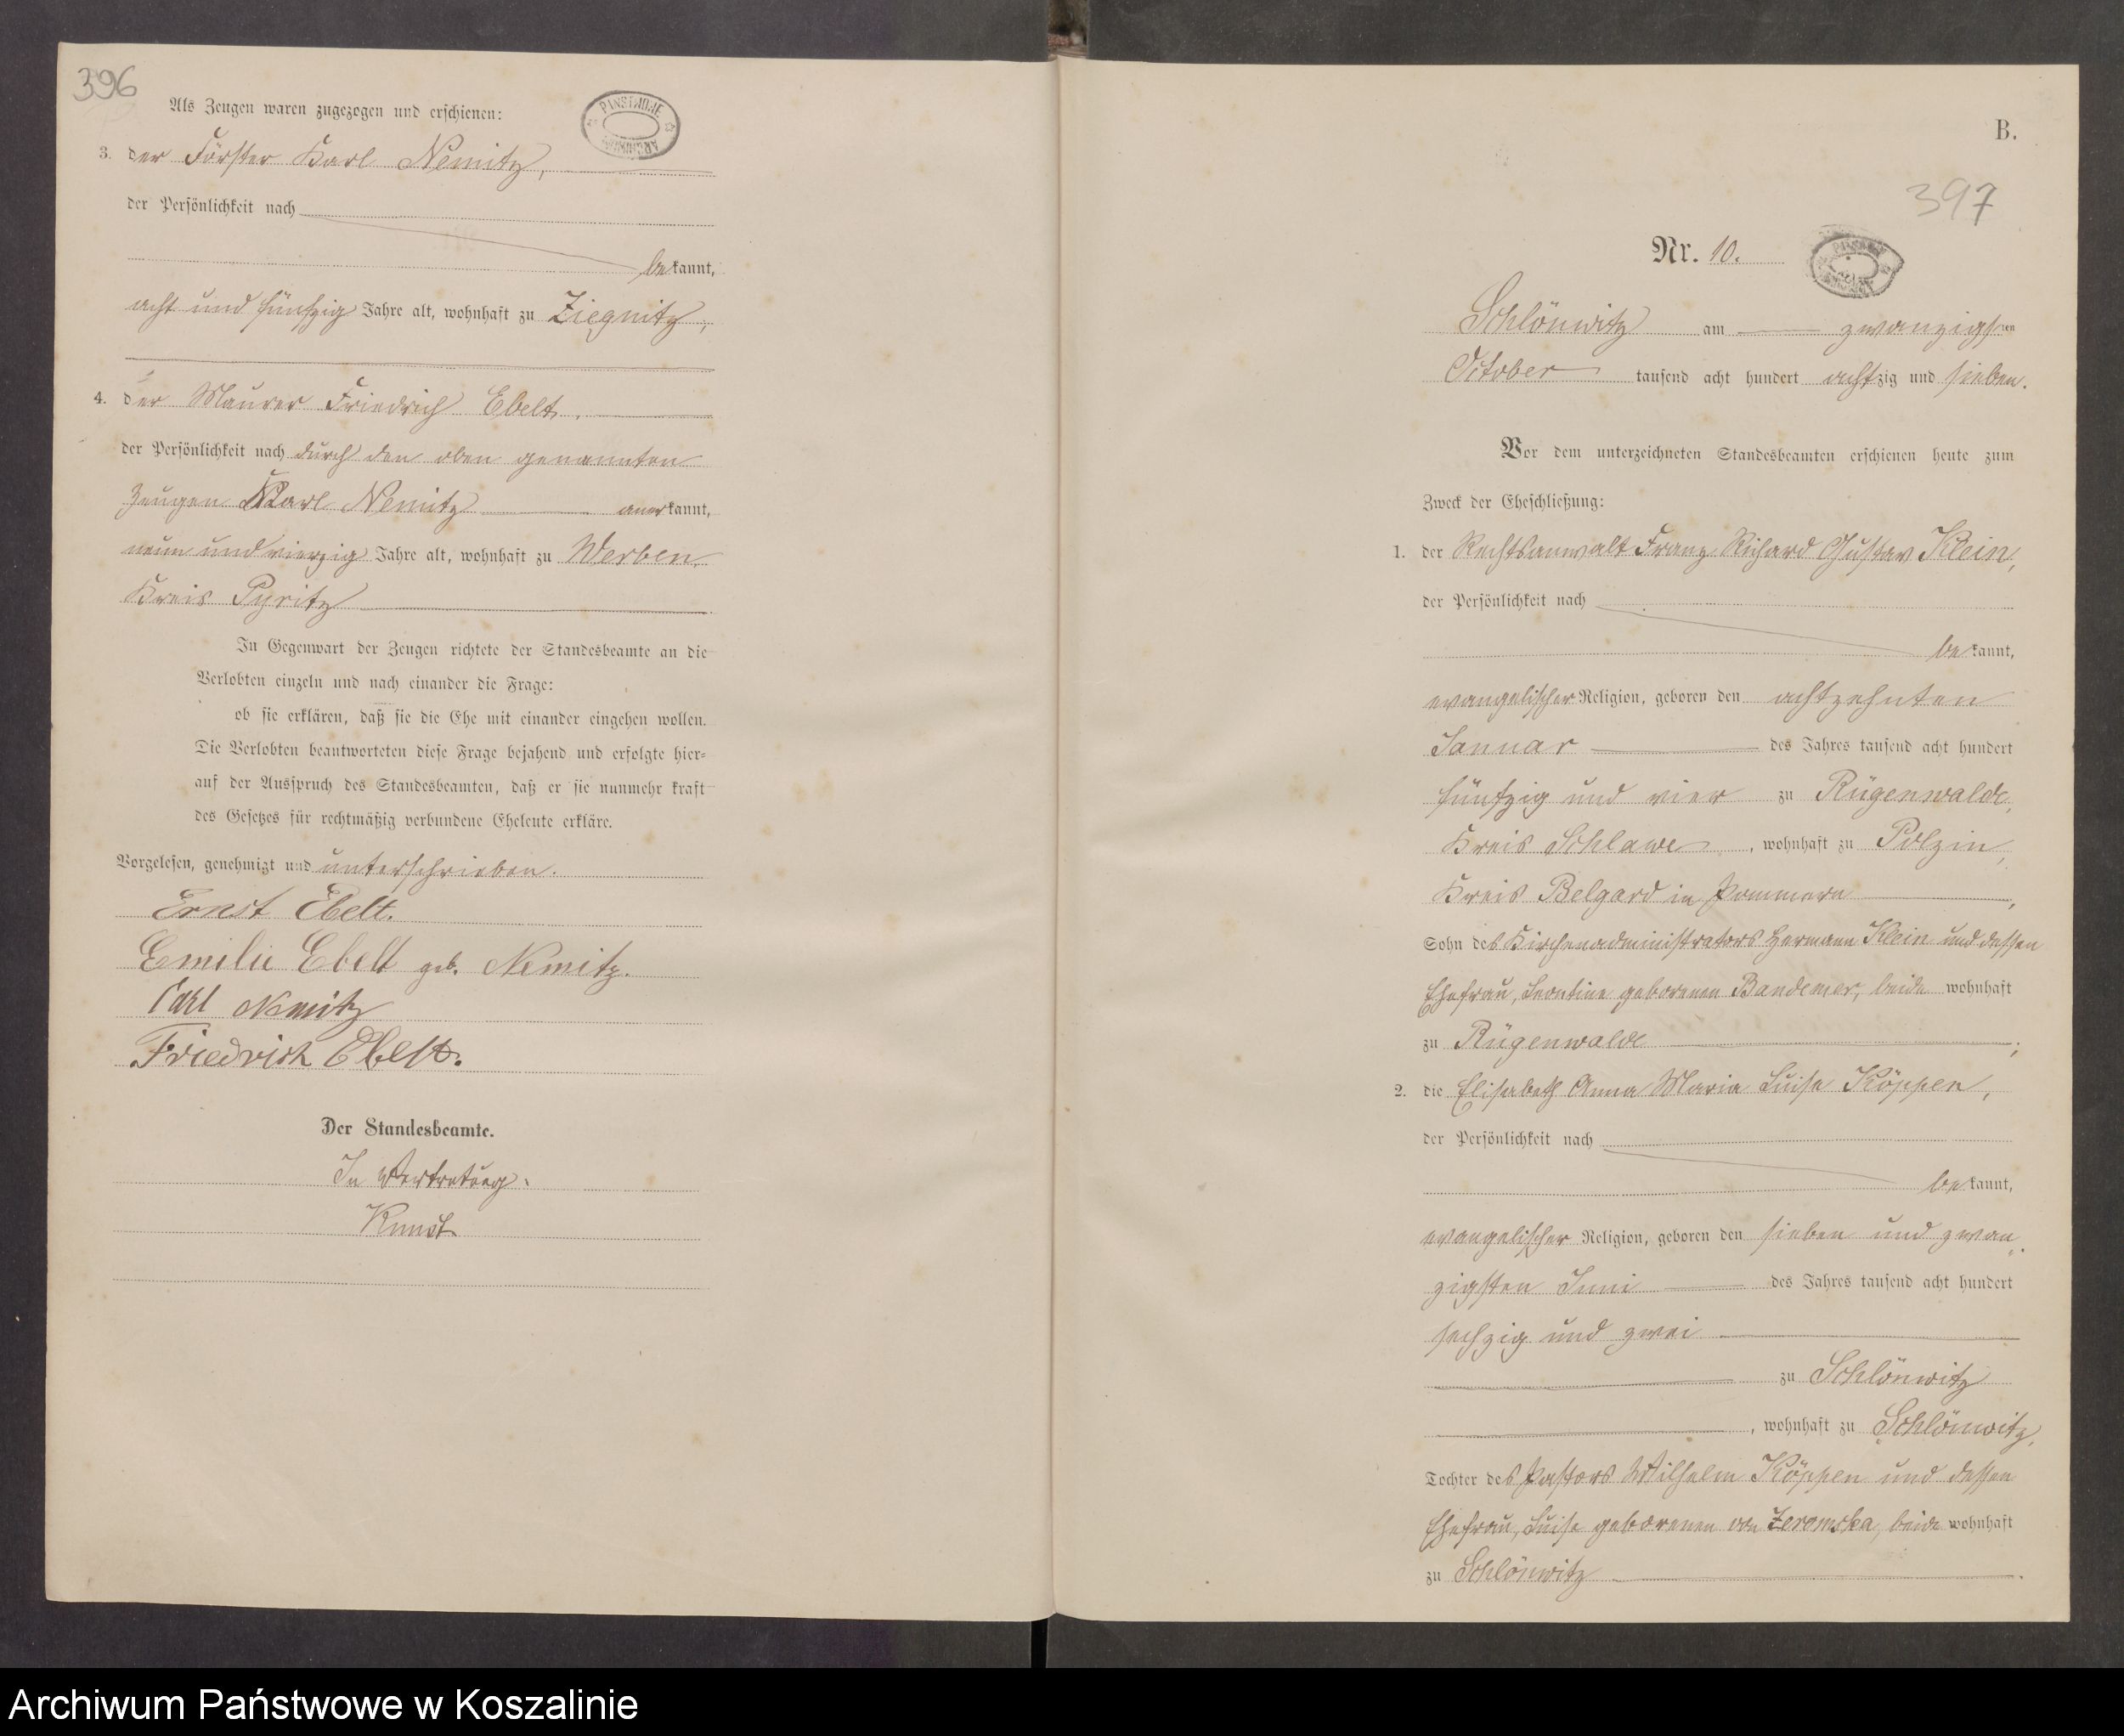 396
Als Zeugen waren zugezogen und erschienen:
3. der Förster Karl Nemitz,
der Persönlichkeit nach
bekannt,
acht und fünfzig Jahre alt, wohnhaft zu Ziegnitz,
4. der Maurer Friedrich Ebelt,
der Persönlichkeit nach durch den oben genannten
Zeugen Karl Nemitz anerkannt,
neun und vierzig Jahre alt, wohnhaft zu Werben,
Kreis Pyritz
In Gegenwart der Zeugen richtete der Standesbeamte an die
Verlobten einzeln und nach einander die Frage:
ob sie erklären, daß sie die Ehe mit einander eingehen wollen.
Die Verlobten beantworteten diese Frage bejahend und erfolgte hier-
auf der Ausspruch des Standesbeamten, daß er sie nunmehr kraft
des Gesetzes für rechtmäßig verbundene Eheleute erkläre.
Vorgelesen, genehmigt und unterschrieben.
Ernst Ebelt.
Emilie Ebelt geb. Nemitz.
Carl Nemitz
Friedrich Ebelt.
Der Standesbeamte.
In Vertretung.
Kunst
B.
397
Nr. 10.
Schlönwitz am zwanzigsten
October tausend acht hundert achtzig und sieben.
Vor dem unterzeichneten Standesbeamten erschienen heute zum
Zweck der Eheschließung:
1. der Rechtsanwalt Franz Richard Gustav Klein,
der Persönlichkeit nach
bekannt,
evangelischer Religion, geboren den achtzehnten
Januar des Jahres tausend acht hundert
fünfzig und vier zu Rügenwalde,
Kreis Schlawe, wohnhaft zu Polzin,
Kreis Belgard in Pommern,
Sohn des Kirchenadministrators Hermann Klein und dessen
Ehefrau, Leontine geborenen Bandemer, beide wohnhaft
zu Rügenwalde;
2. die Elisabeth Anna Maria Luise Köppen,
der Persönlichkeit nach
bekannt,
evangelischer Religion, geboren den sieben und zwan
zigsten Juni des Jahres tausend acht hundert
sechzig und zwei
zu Schlönwitz
, wohnhaft zu Schlönwitz,
Tochter des Pastors Wilhelm Köppen und dessen
Ehefrau, Luise geborenen von Zeromska, beide wohnhaft
zu Schlönwitz.
Archiwum Państwowe w Koszalinie